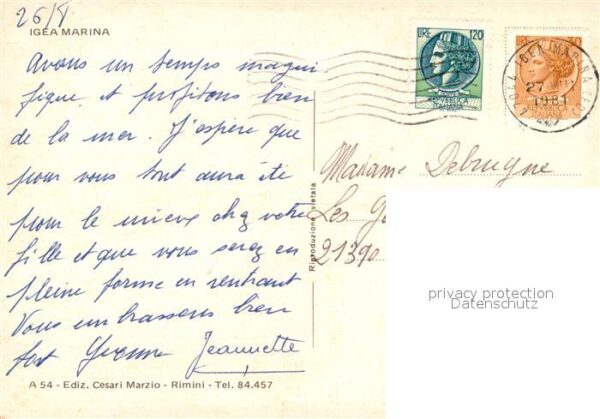 26/8
IGEA MARINA
Avons un temps magni
fique et profitons bien
de la mer. J'espère que
pour vous tout aura été
pour le mieux chez votre
fille et que vous serez en
pleine forme en rentrant
Vous embrassons bien
fort Yvonne Jeannette
A 54 - Ediz. Cesari Marzio - Rimini - Tel. 84.457
Riproduzione vietata
LIRE 120
REPUBBLICA
ITALIANA
LIRE
ITALIANA
IGEA MARINA
27
1981
Madame Debruyne
Les
21390
privacy protection
Datenschutz